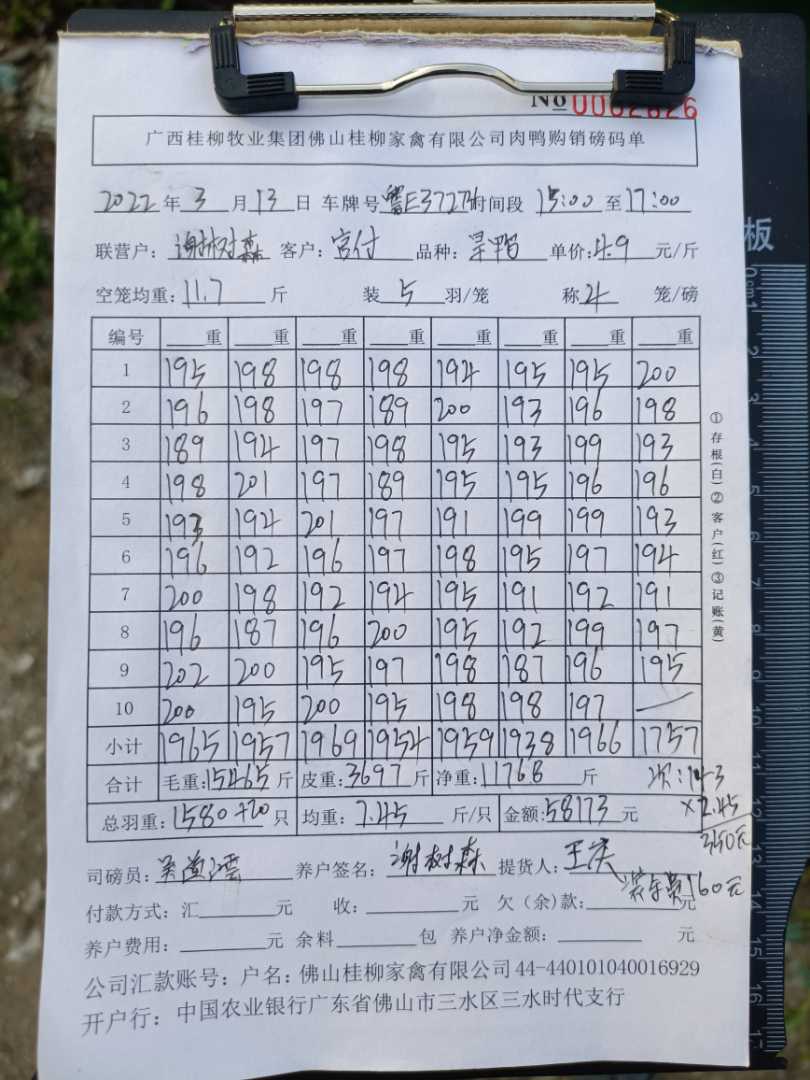 No 0002626
广西桂柳牧业集团佛山桂柳家禽有限公司肉鸭购销磅码单
2022年3月13日 车牌号粤E3727 时间段 15:00至17:00
联营户:谢树森 客户:宫付 品种:旱鸭 单价:4.9元/斤
空笼均重:11.7斤 装5羽/笼 称4笼/磅
编号 重 重 重 重 重 重 重 重
1 195 198 198 198 194 195 195 200
2 196 198 197 189 200 193 196 198
3 189 194 197 198 195 193 199 193
4 198 201 197 189 195 195 196 196
5 193 194 201 197 191 199 199 193
6 196 192 196 197 198 195 197 194
7 200 198 192 194 195 191 192 191
8 196 187 196 200 195 192 199 197
9 202 200 195 197 198 187 196 195
10 200 195 200 195 198 198 197 —
小计 1965 1957 1969 1954 1959 1938 1966 1757
合计 毛重:15465斤 皮重:3697斤 净重:11768斤
次:143
×2.45
350元
总羽重:1580+20只 均重:7.45斤/只 金额:58173元
司磅员: 养户签名:谢树森 提货人:王庆
装车费160元
付款方式:汇 元 收: 元 欠(余)款: 元
养户费用: 元 余料 包 养户净金额: 元
公司汇款账号:户名:佛山桂柳家禽有限公司44-440101040016929
开户行:中国农业银行广东省佛山市三水区三水时代支行
①存根(白)②客户(红)③记账(黄)
板